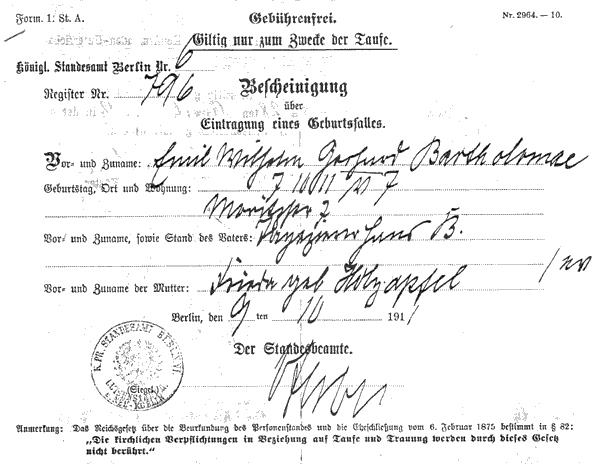 Form. 1. St. A.
Gebührenfrei.
Nr. 2964. — 10.
Giltig nur zum Zwecke der Taufe.
Königl. Standesamt Berlin Nr. 6
Register Nr. 796
Bescheinigung
über
Eintragung eines Geburtsfalles.
Vor- und Zuname: Emil Wilhelm Gerhard Bartholomae
Geburtstag, Ort und Wohnung: 7 10 11 V 7
Moritzstr 7
Vor- und Zuname, sowie Stand des Vaters: Tapezierer Hans B.
Vor- und Zuname der Mutter: Frieda geb Holzapfel / ev
Berlin, den 9 ten 10 1911
Der Standesbeamte.
K. PR. STANDESAMT BERLIN VI.
(Siegel.)
Anmerkung: Das Reichsgesetz über die Beurkundung des Personenstandes und die Eheschließung vom 6. Februar 1875 bestimmt in § 82:
„Die kirchlichen Verpflichtungen in Beziehung auf Taufe und Trauung werden durch dieses Gesetz
nicht berührt."